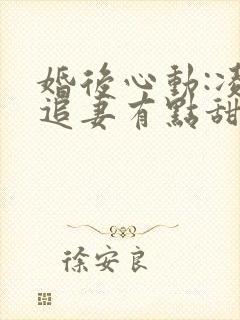 婚後心動:凌
追妻有點甜
徐安良